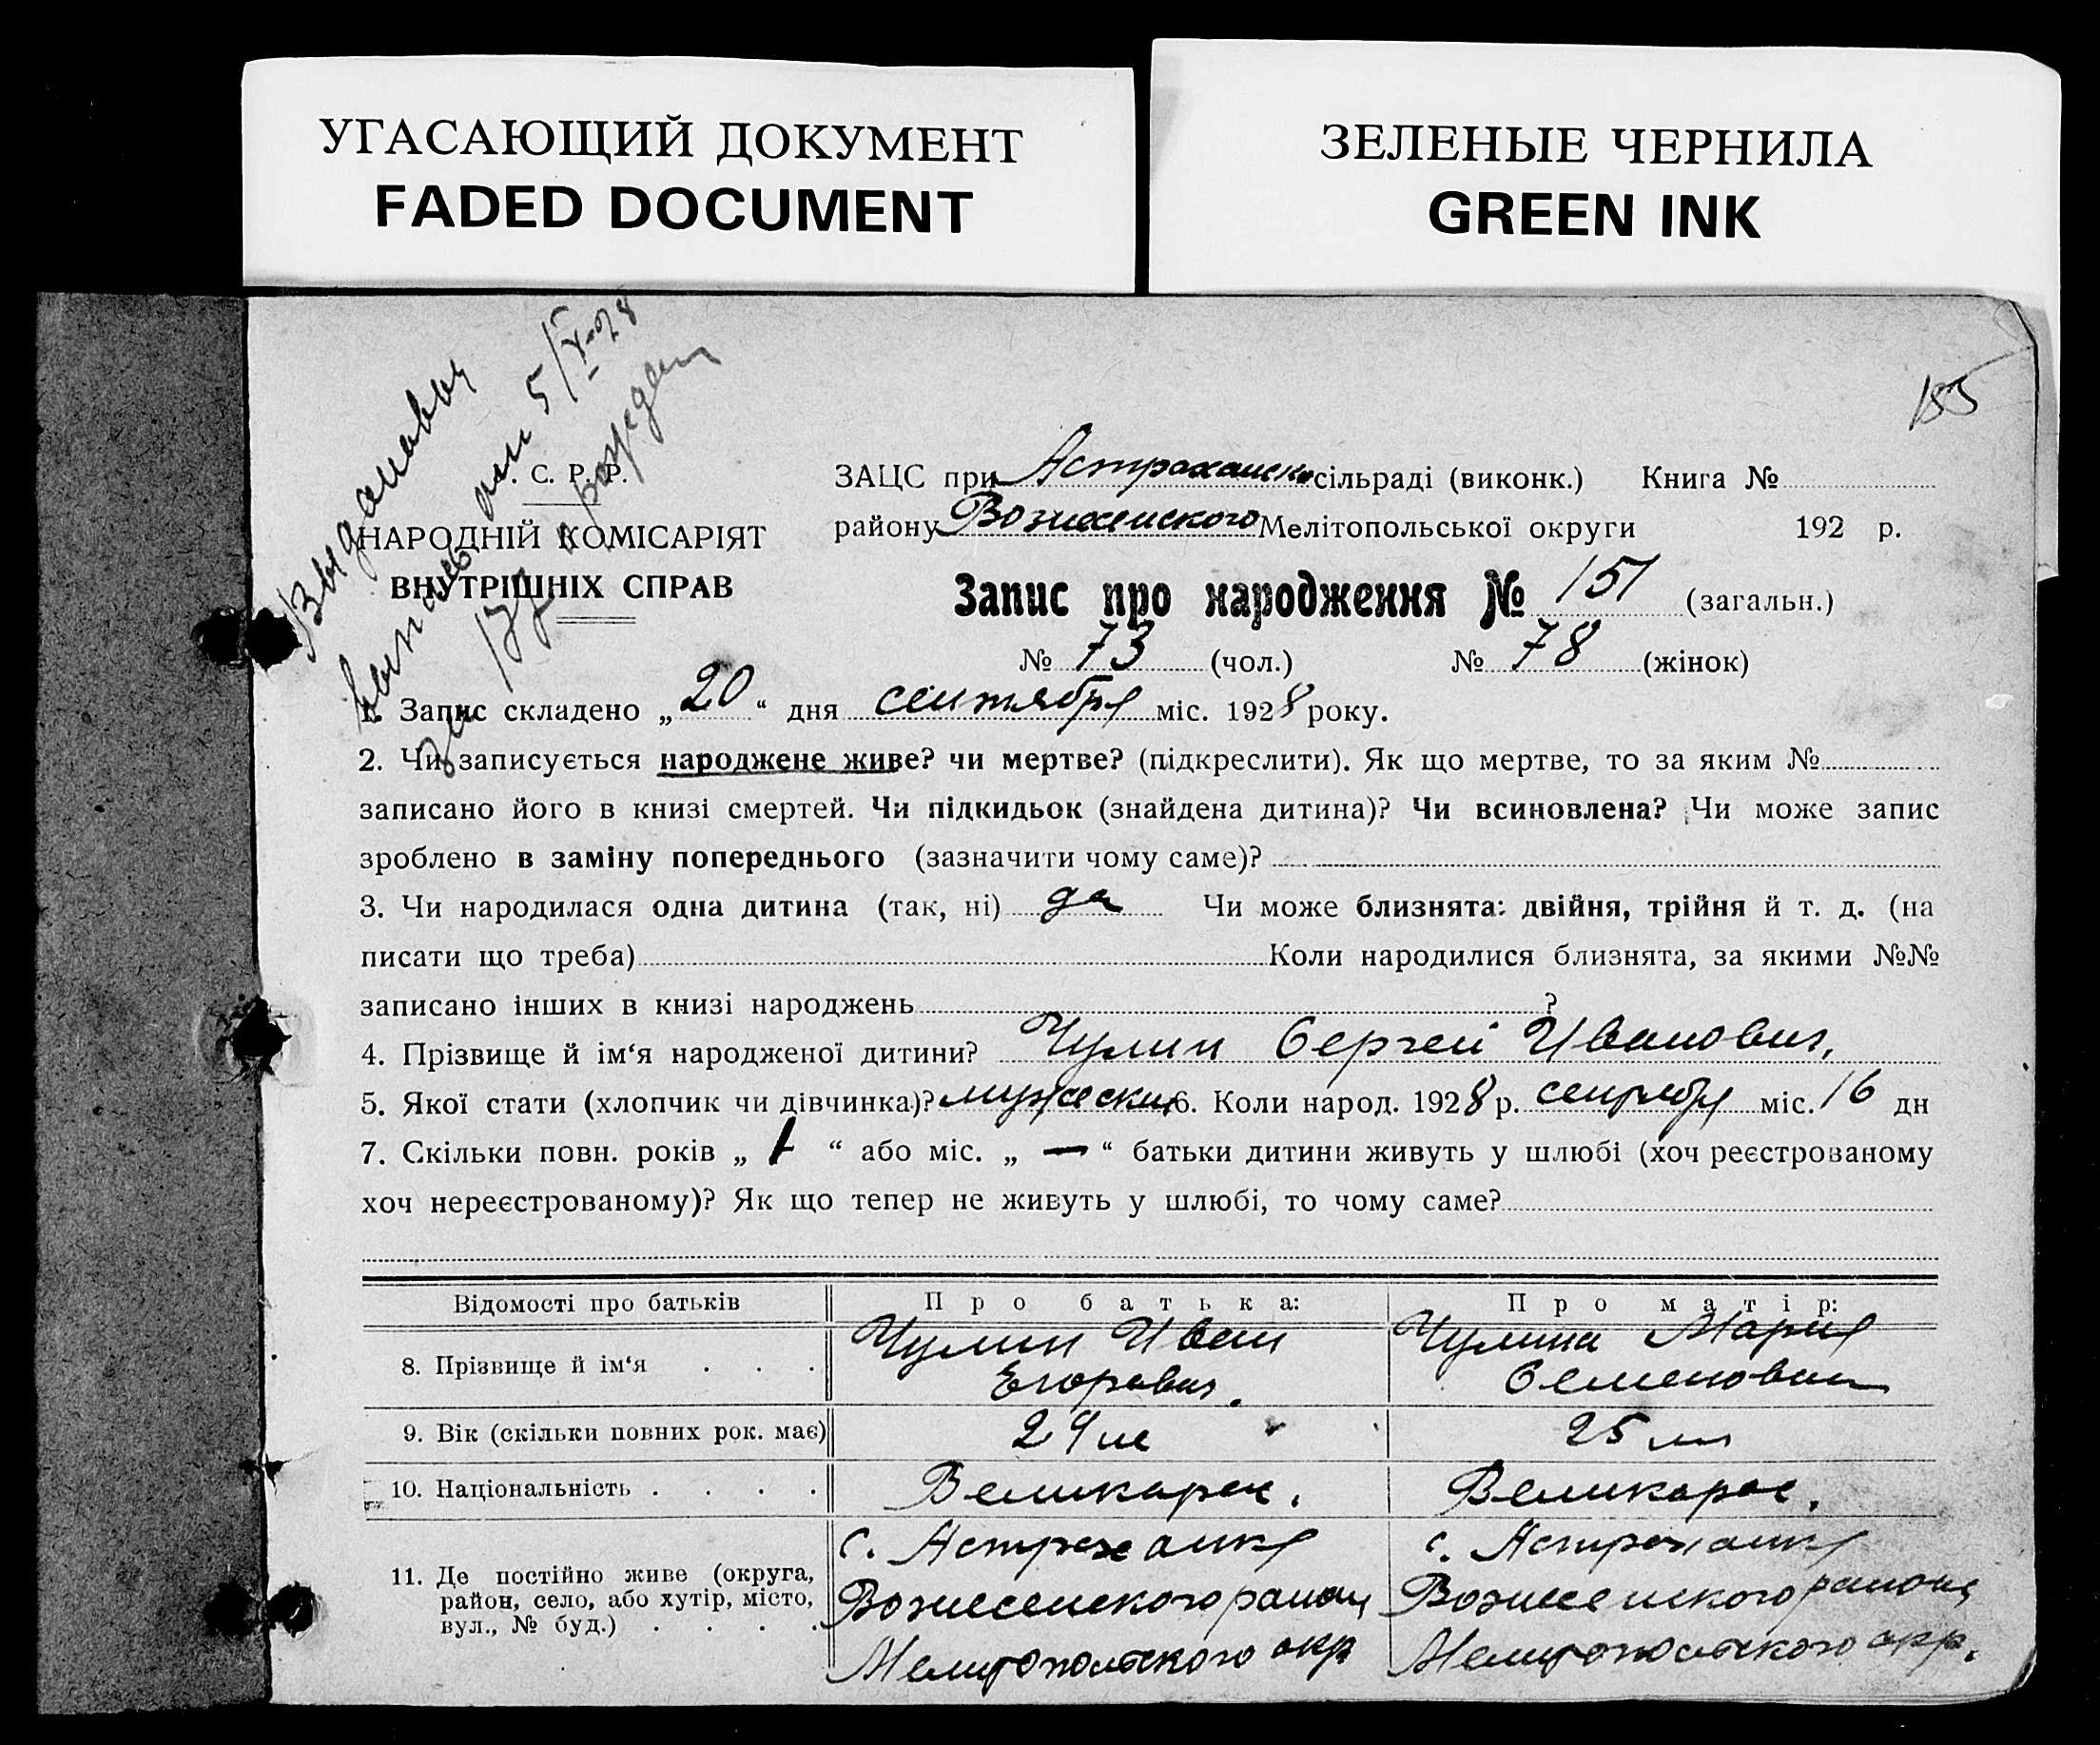 УГАСАЮЩИЙ ДОКУМЕНТ
FADED DOCUMENT
ЗЕЛЕНЫЕ ЧЕРНИЛА
GREEN INK
155
. С. Р. Р.
НАРОДНІЙ КОМІСАРІЯТ
ВНУТРІШНІХ СПРАВ
ЗАЦС при Астраханско сільраді (виконк.) Книга №
району Вознесенского Мелітопольської округи 192 р.
Запис про народження № 151 (загальн.)
№ 73 (чол.) № 78 (жінок)
1. Запис складено „20“ дня сентября міс. 1928 року.
2. Чи записується народжене живе? чи мертве? (підкреслити). Як що мертве, то за яким №
записано його в книзі смертей. Чи підкидьок (знайдена дитина)? Чи всиновлена? Чи може запис
зроблено в заміну попереднього (зазначити чому саме)?
3. Чи народилася одна дитина (так, ні) да Чи може близнята: двійня, трійня й т. д. (на
писати що треба) Коли народилися близнята, за якими №№
записано інших в книзі народжень ?
4. Прізвище й ім‘я народженої дитини? Чулин Сергей Иванович.
5. Якої стати (хлопчик чи дівчинка)? мужески 6. Коли народ. 1928 р. сентября міс. 16 дн
7. Скільки повн. років „ 1 “ або міс. „ — “ батьки дитини живуть у шлюбі (хоч реєстрованому
хоч нереєстрованому)? Як що тепер не живуть у шлюбі, то чому саме?
Відомості про батьків Про батька: Про матір:
8. Прізвище й ім‘я . . . Чулин Иван Егорович. Чулина Мария Семеновна
9. Вік (скільки повних рок. має) 25
10. Національність . . . . Великорос. Великорос.
11. Де постійно живе (округа, район, село, або хутір, місто, вул., № буд.) . . . .
с. Астраханка с. Астраханка
Вознесенского района Вознесенского района
Мелитопольского окр Мелитопольского окр.